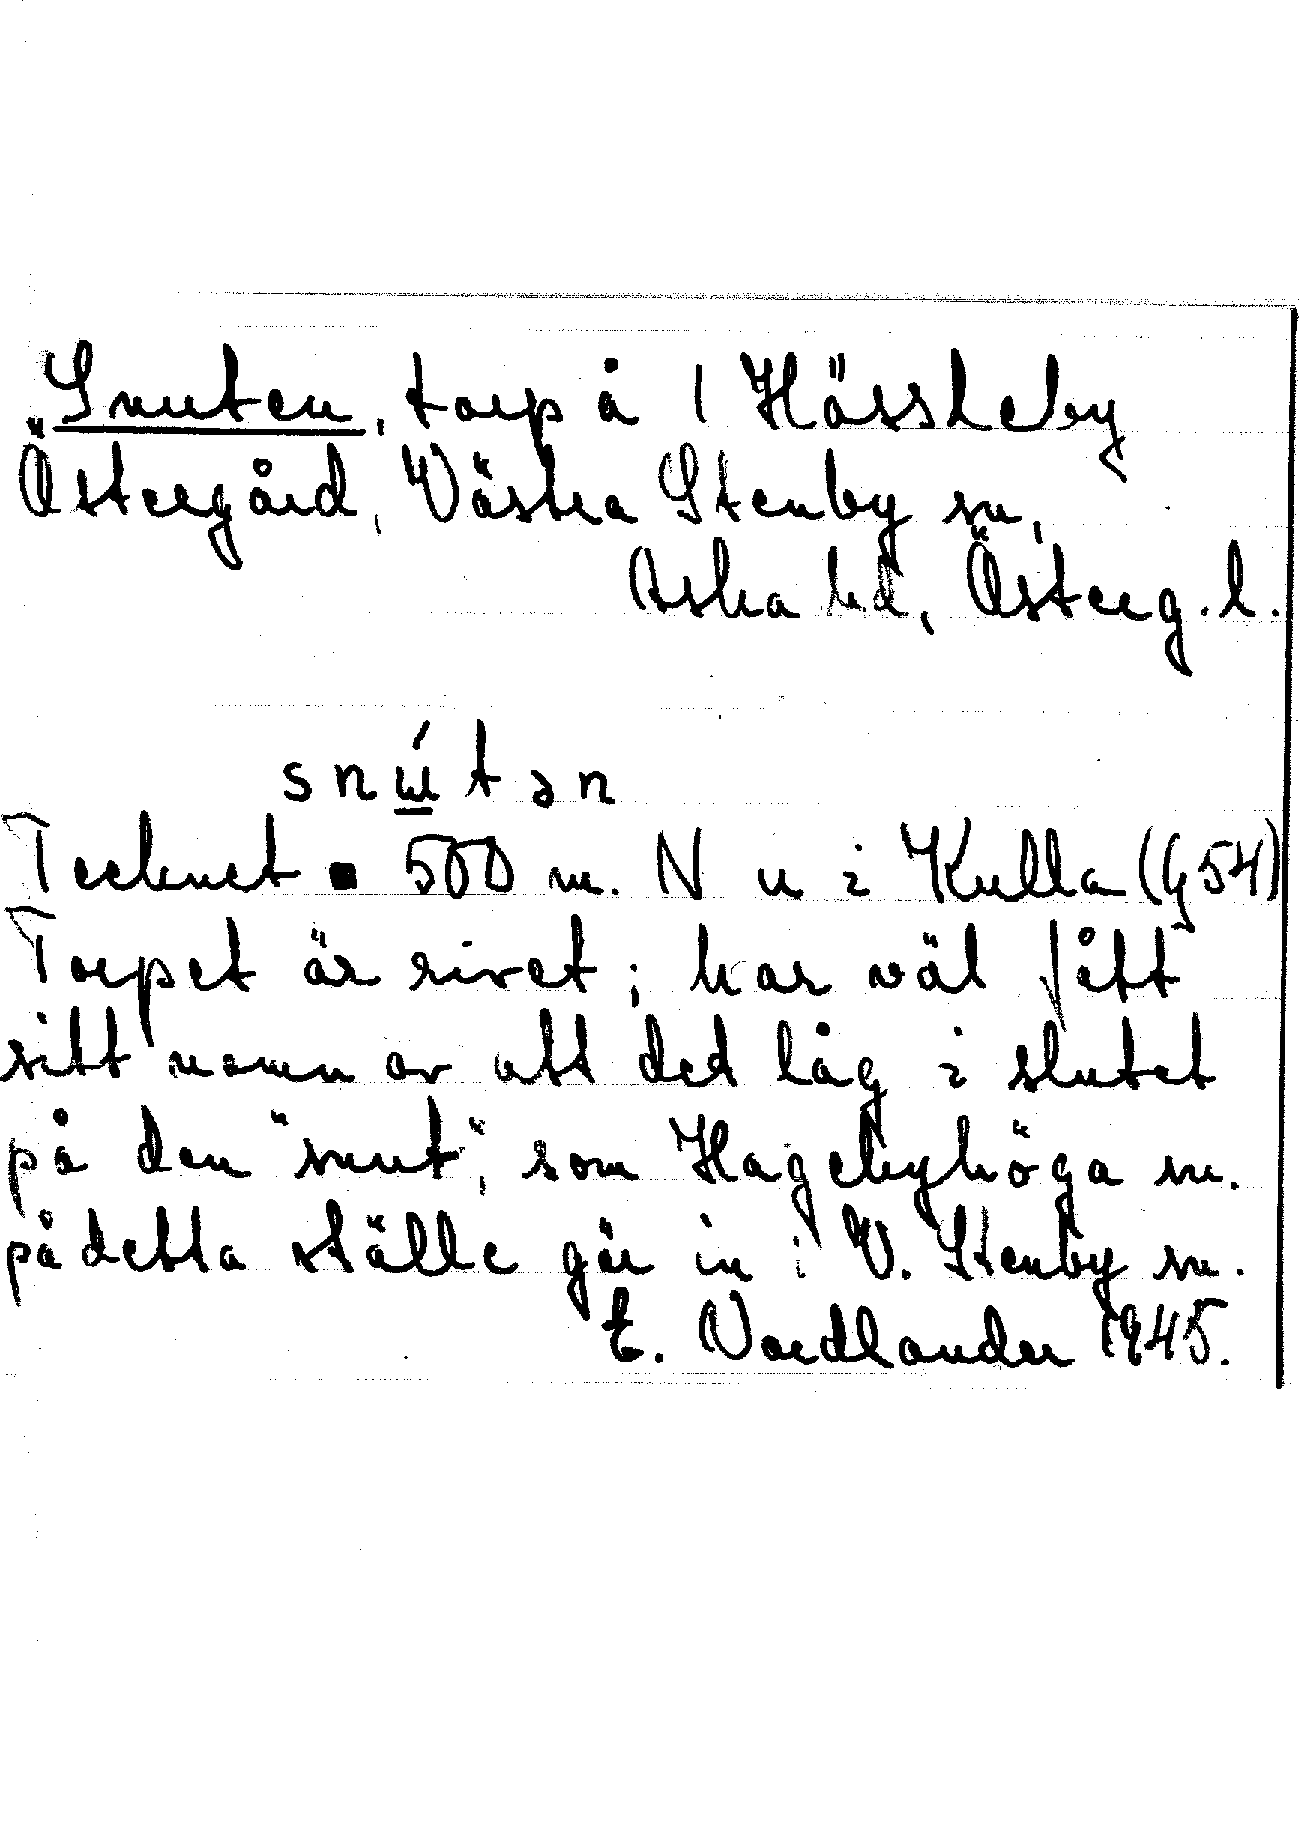 Snuten, torp å 1 Hässleby
Östergård, Västra Stenby sn,
Aska hd, Österg. l.
snú̲tən
Tecknet ▪ 500 m. N u i Kulla (G54)
Torpet är rivet; har väl fått
sitt namn av att det låg i slutet
på den "snut", som Hagebyhöga sn.
på detta ställe går in i V. Stenby sn.
E. Vordlander 1945.